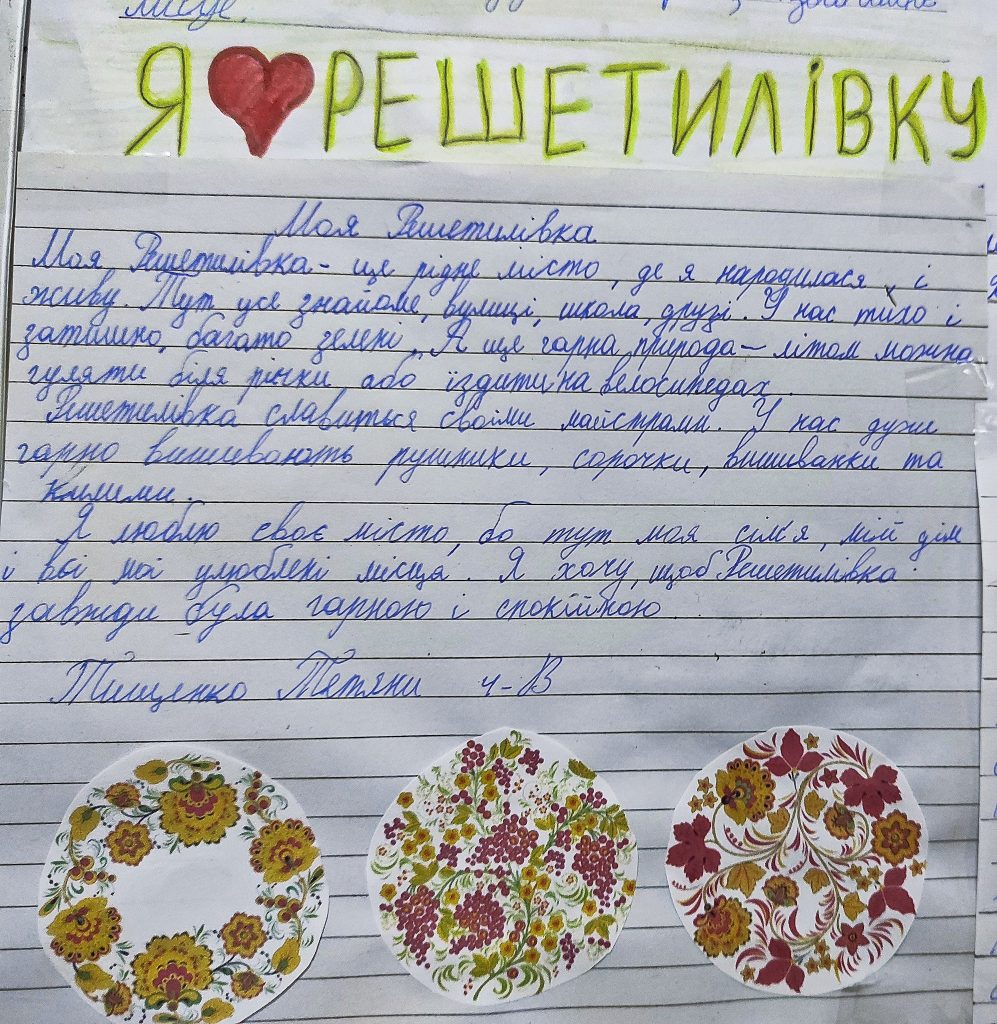 місце.
Я РЕШЕТИЛІВКУ
Моя Решетилівка
Моя Решетилівка - це рідне місто, де я народилася, і
живу. Тут усе знайоме, вулиці, школа, друзі. У нас тихо і
затишно, багато зелені. А ще гарна природа – літом можна
гуляти біля річки або їздити на велосипедах.
Решетилівка славиться своїми майстрами. У нас дуже
гарно вишивають рушники, сорочки, вишиванки та
килими.
Я люблю своє місто, бо тут моя сім'я, мій дім
і всі мої улюблені місця. Я хочу, щоб Решетилівка
завжди була гарною і спокійною.
Тищенко Тетяни 4-В